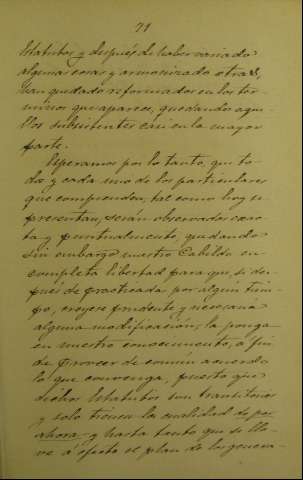 71
Estatutos y después de haber variado
algunas cosas y armonizado otras,
han quedado reformados en los tér-
minos que aparece, quedando aque-
llos subsistentes casi en la mayor
parte.
Esperamos por lo tanto, que to-
da y cada uno de los particulares
que comprenden, tal como hoy se
presentan, serán observados exac-
ta y puntualmente, quedando
sin embargo nuestro Cabildo en
completa libertad para que, si des-
pués de practicada por algún tiem-
po, creyere prudente y necesaria
alguna modificación, la ponga
en nuestro conocimiento, a fin
de proveer de común acuerdo
lo que convenga, puesto que
dichos Estatutos son transitorios
y solo tienen la cualidad de por
ahora y hasta tanto que se lle-
ve á efecto el plan de los genera-